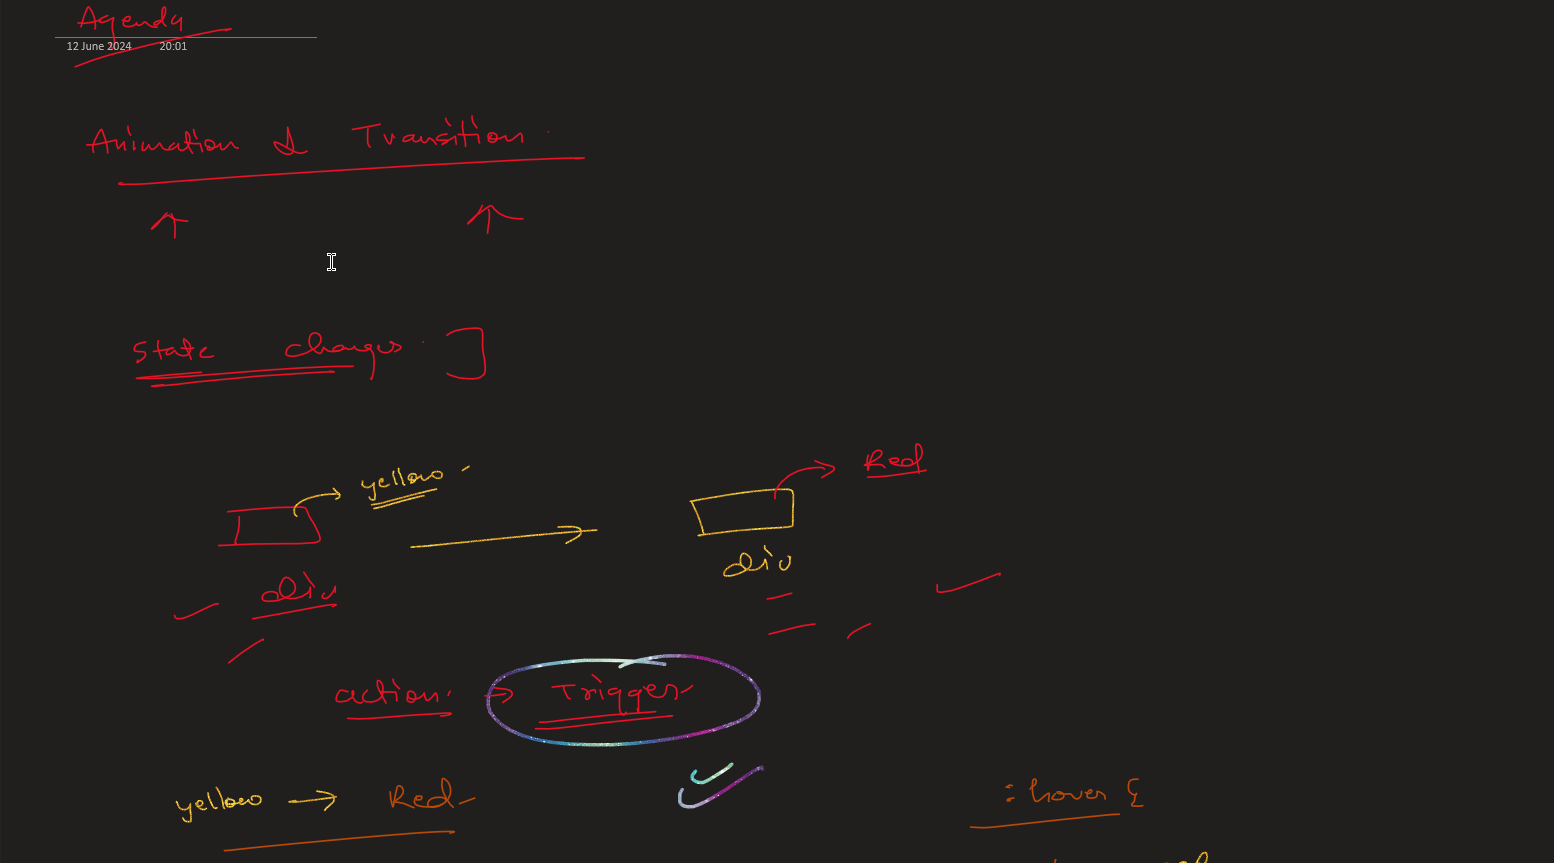 Agenda
12 June 2024 20:01
Animation & Transition
State changes
yellow
Red
div
div
action → Trigger
yellow → Red
:hover {